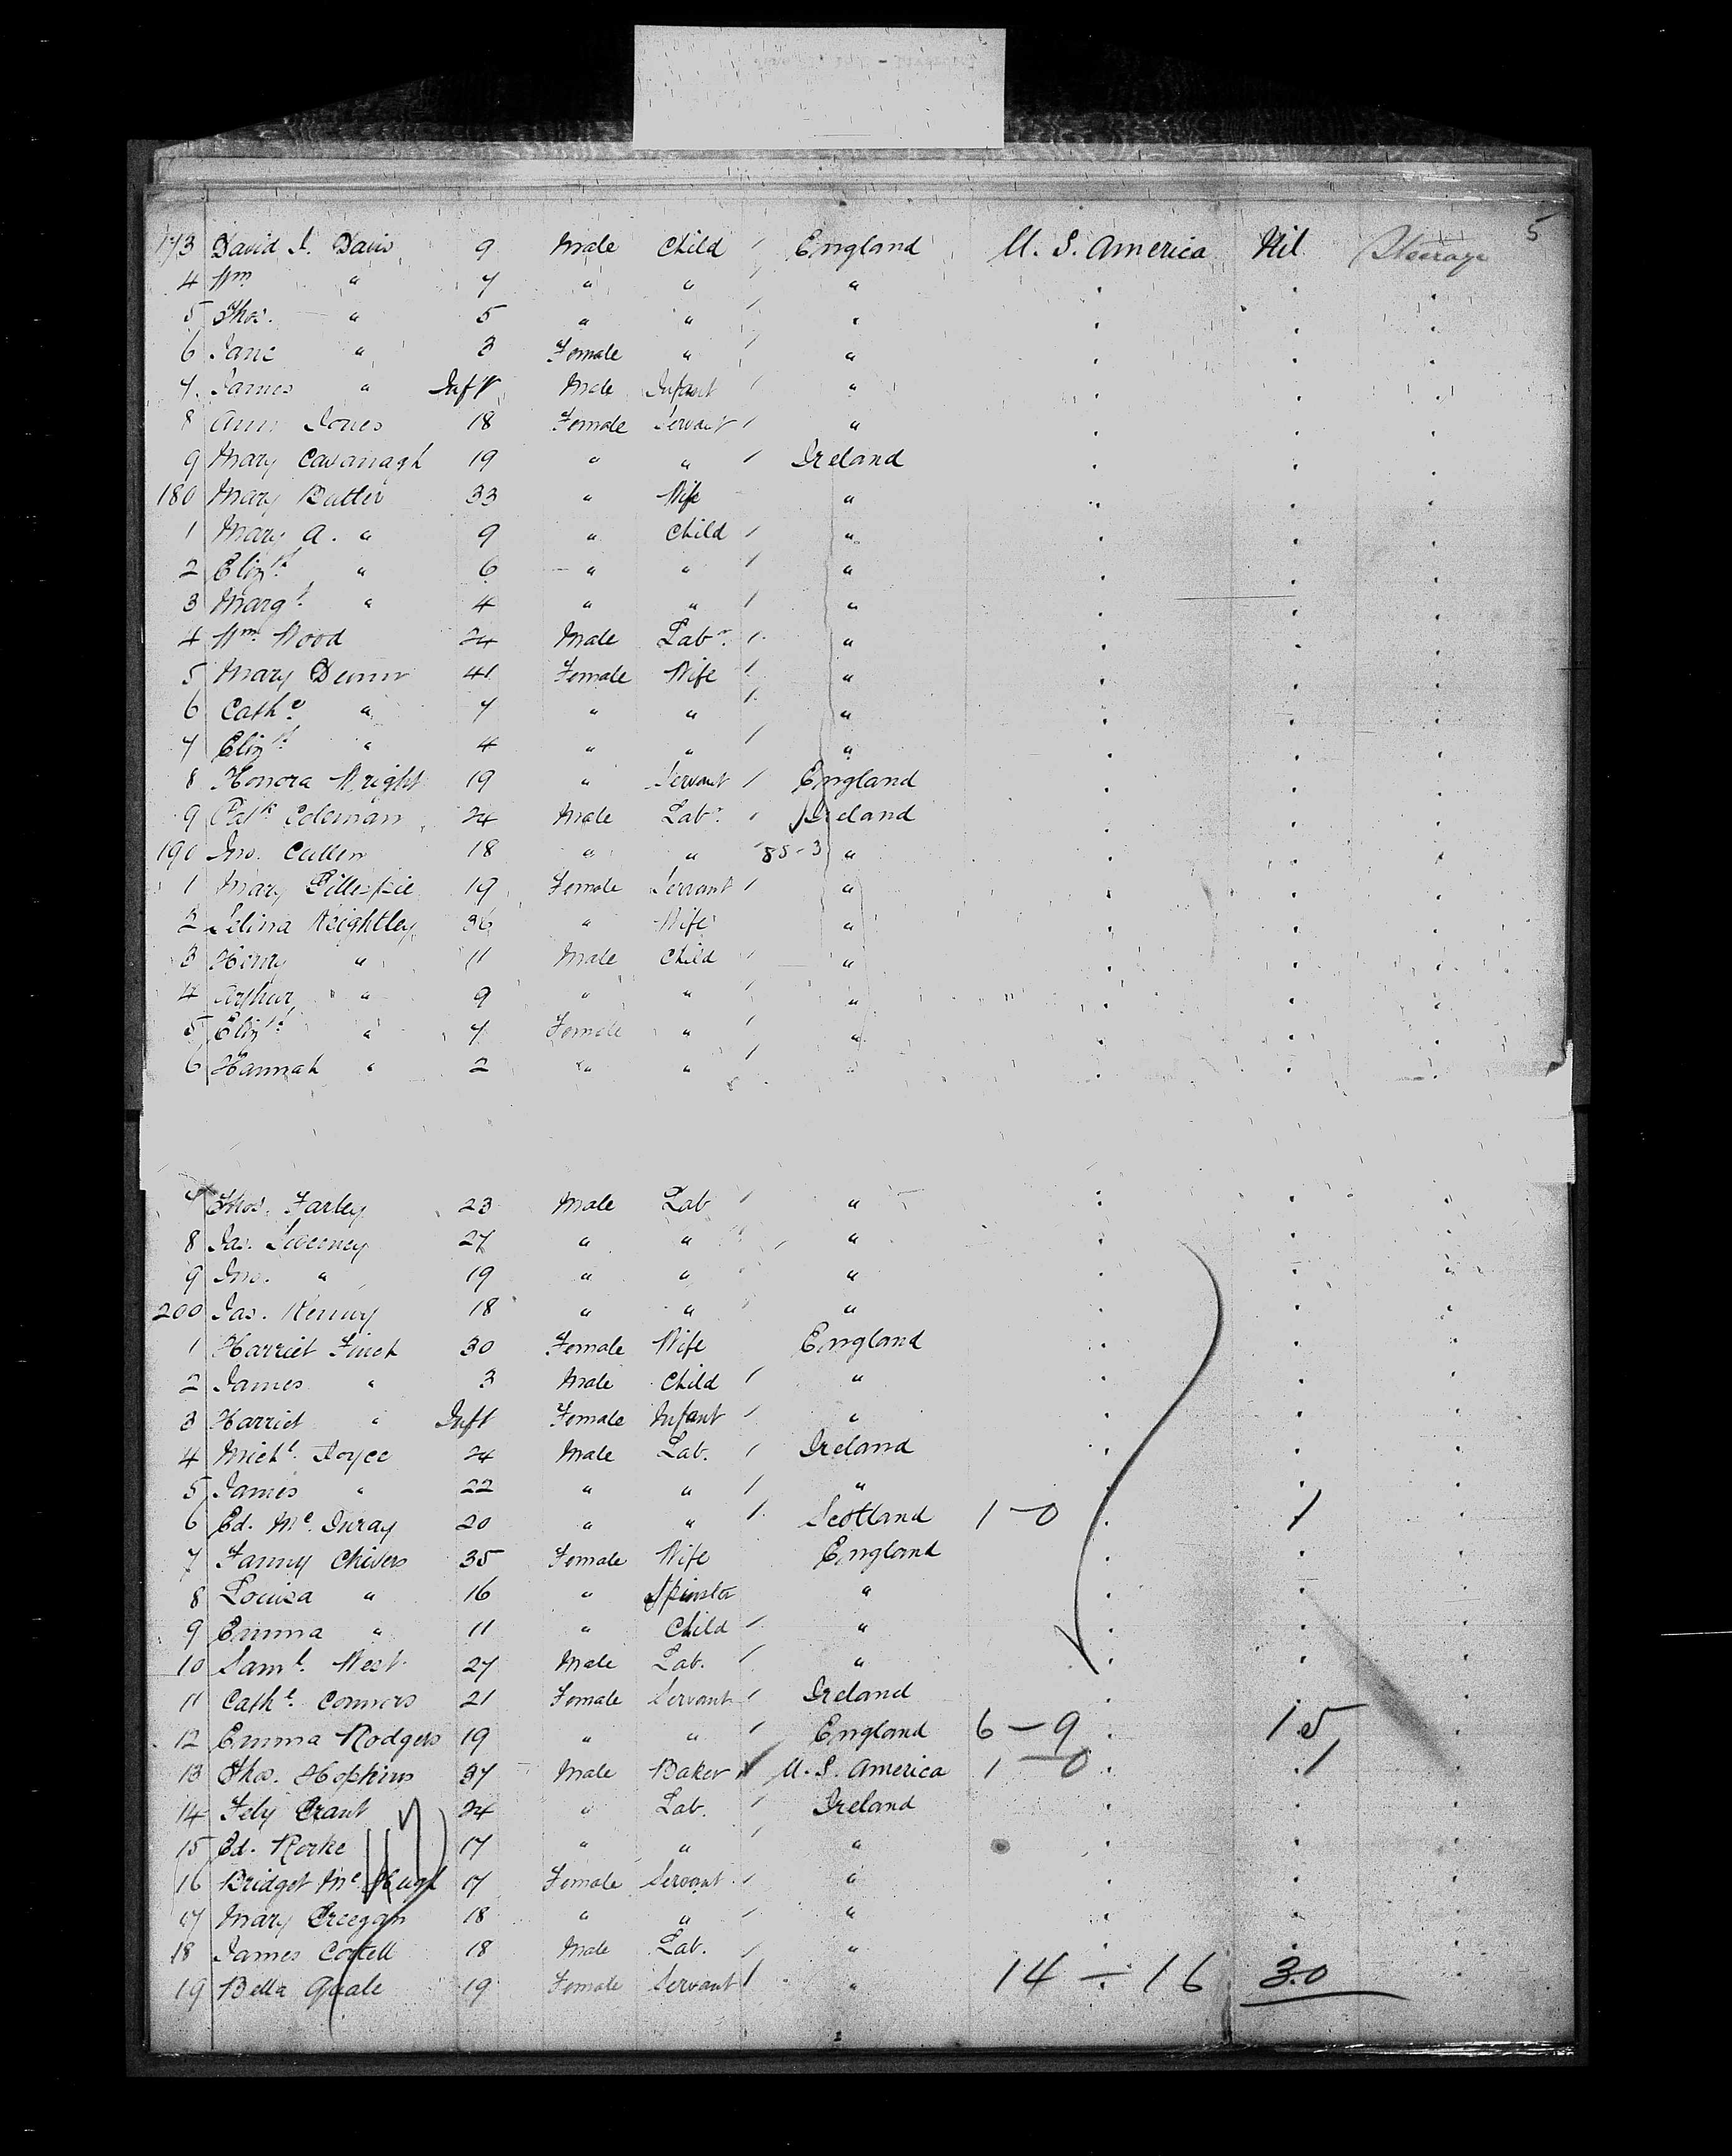 5
173 David J. Davis 9 Male Child England U. S. America Nil Steerage
4 Wm " 7 " " "
5 Thos. " 5 " " "
6 Jane " 3 Female " "
7 James " Inft Male Infant "
8 Ann Jones 18 Female Servant "
9 Mary Cavanagh 19 " " Ireland
180 Mary Butler 33 " Wife "
1 Mary A. " 9 " Child "
2 Elizth " 6 " " "
3 Margt " 4 " " "
4 Wm Wood 24 Male Labr "
5 Mary 41 Female Wife "
6 Cathe " 7 " " "
7 Elizth " 4 " " "
8 Honora Wright 19 " Servant England
9 Patk Coleman 24 Male Labr Ireland
190 Jno. Cullen 18 " " 85-3 "
1 Mary Gillespie 19 Female Servant "
2 Selina Keightley 36 " Wife "
3 Henry " 11 Male Child "
4 Arthur " 9 " " "
5 Elizth " 7 Female " "
6 Hannah " 2 " " "
7 Thos. Farley 23 Male Lab "
8 Jas. Sweeney 27 " " "
9 Jno. " 19 " " "
200 Jas. Kenny 18 " " "
1 Harriet Finch 30 Female Wife England
2 James " 3 Male Child "
3 Harriet " Inft Female Infant "
4 Michl Joyce 24 Male Lab. Ireland
5 James " 22 " " "
6 Ed. Mc 20 " " Scotland 1-0 1
7 Fanny Chivers 35 Female Wife England
8 Louisa " 16 " Spinster "
9 Emma " 11 " Child "
10 Saml West 27 Male Lab. "
11 Cathe Connors 21 Female Servant Ireland
12 Emma Rodgers 19 " " England 6-9 15
13 Thos. Hopkins 37 Male Baker U. S. America 1-0 1
14 Grant 24 " Lab. Ireland
15 Ed. Rorke 17 " " "
16 Bridget McHugh 17 Female Servant "
17 Mary Creegan 18 " " "
18 James Costell 18 Male Lab. "
19 Bella Quale 19 Female Servant " 14-16 30